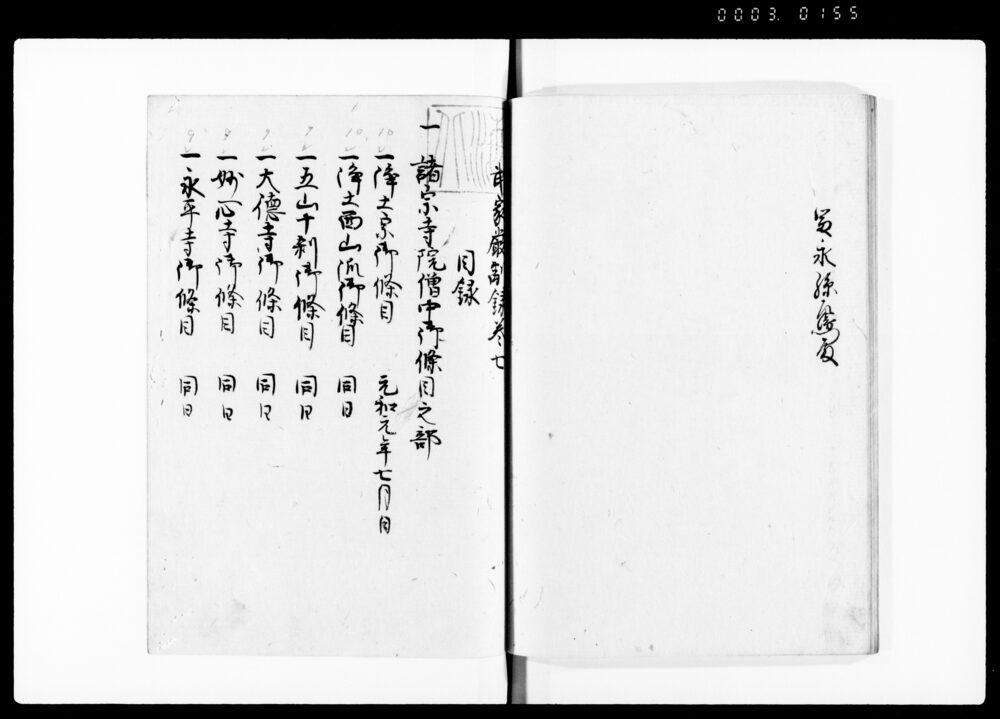 0003.0155
武家嚴制録巻七
目録
一諸宗寺院僧中御條目之部
10 一浄土宗御條目 元和元年七月日
10 一浄土西山流御條目 同日
7 一五山十刹御條目 同日
7 一大德寺御條目 同日
8 一妙心寺御條目 同日
9 一永平寺御條目 同日